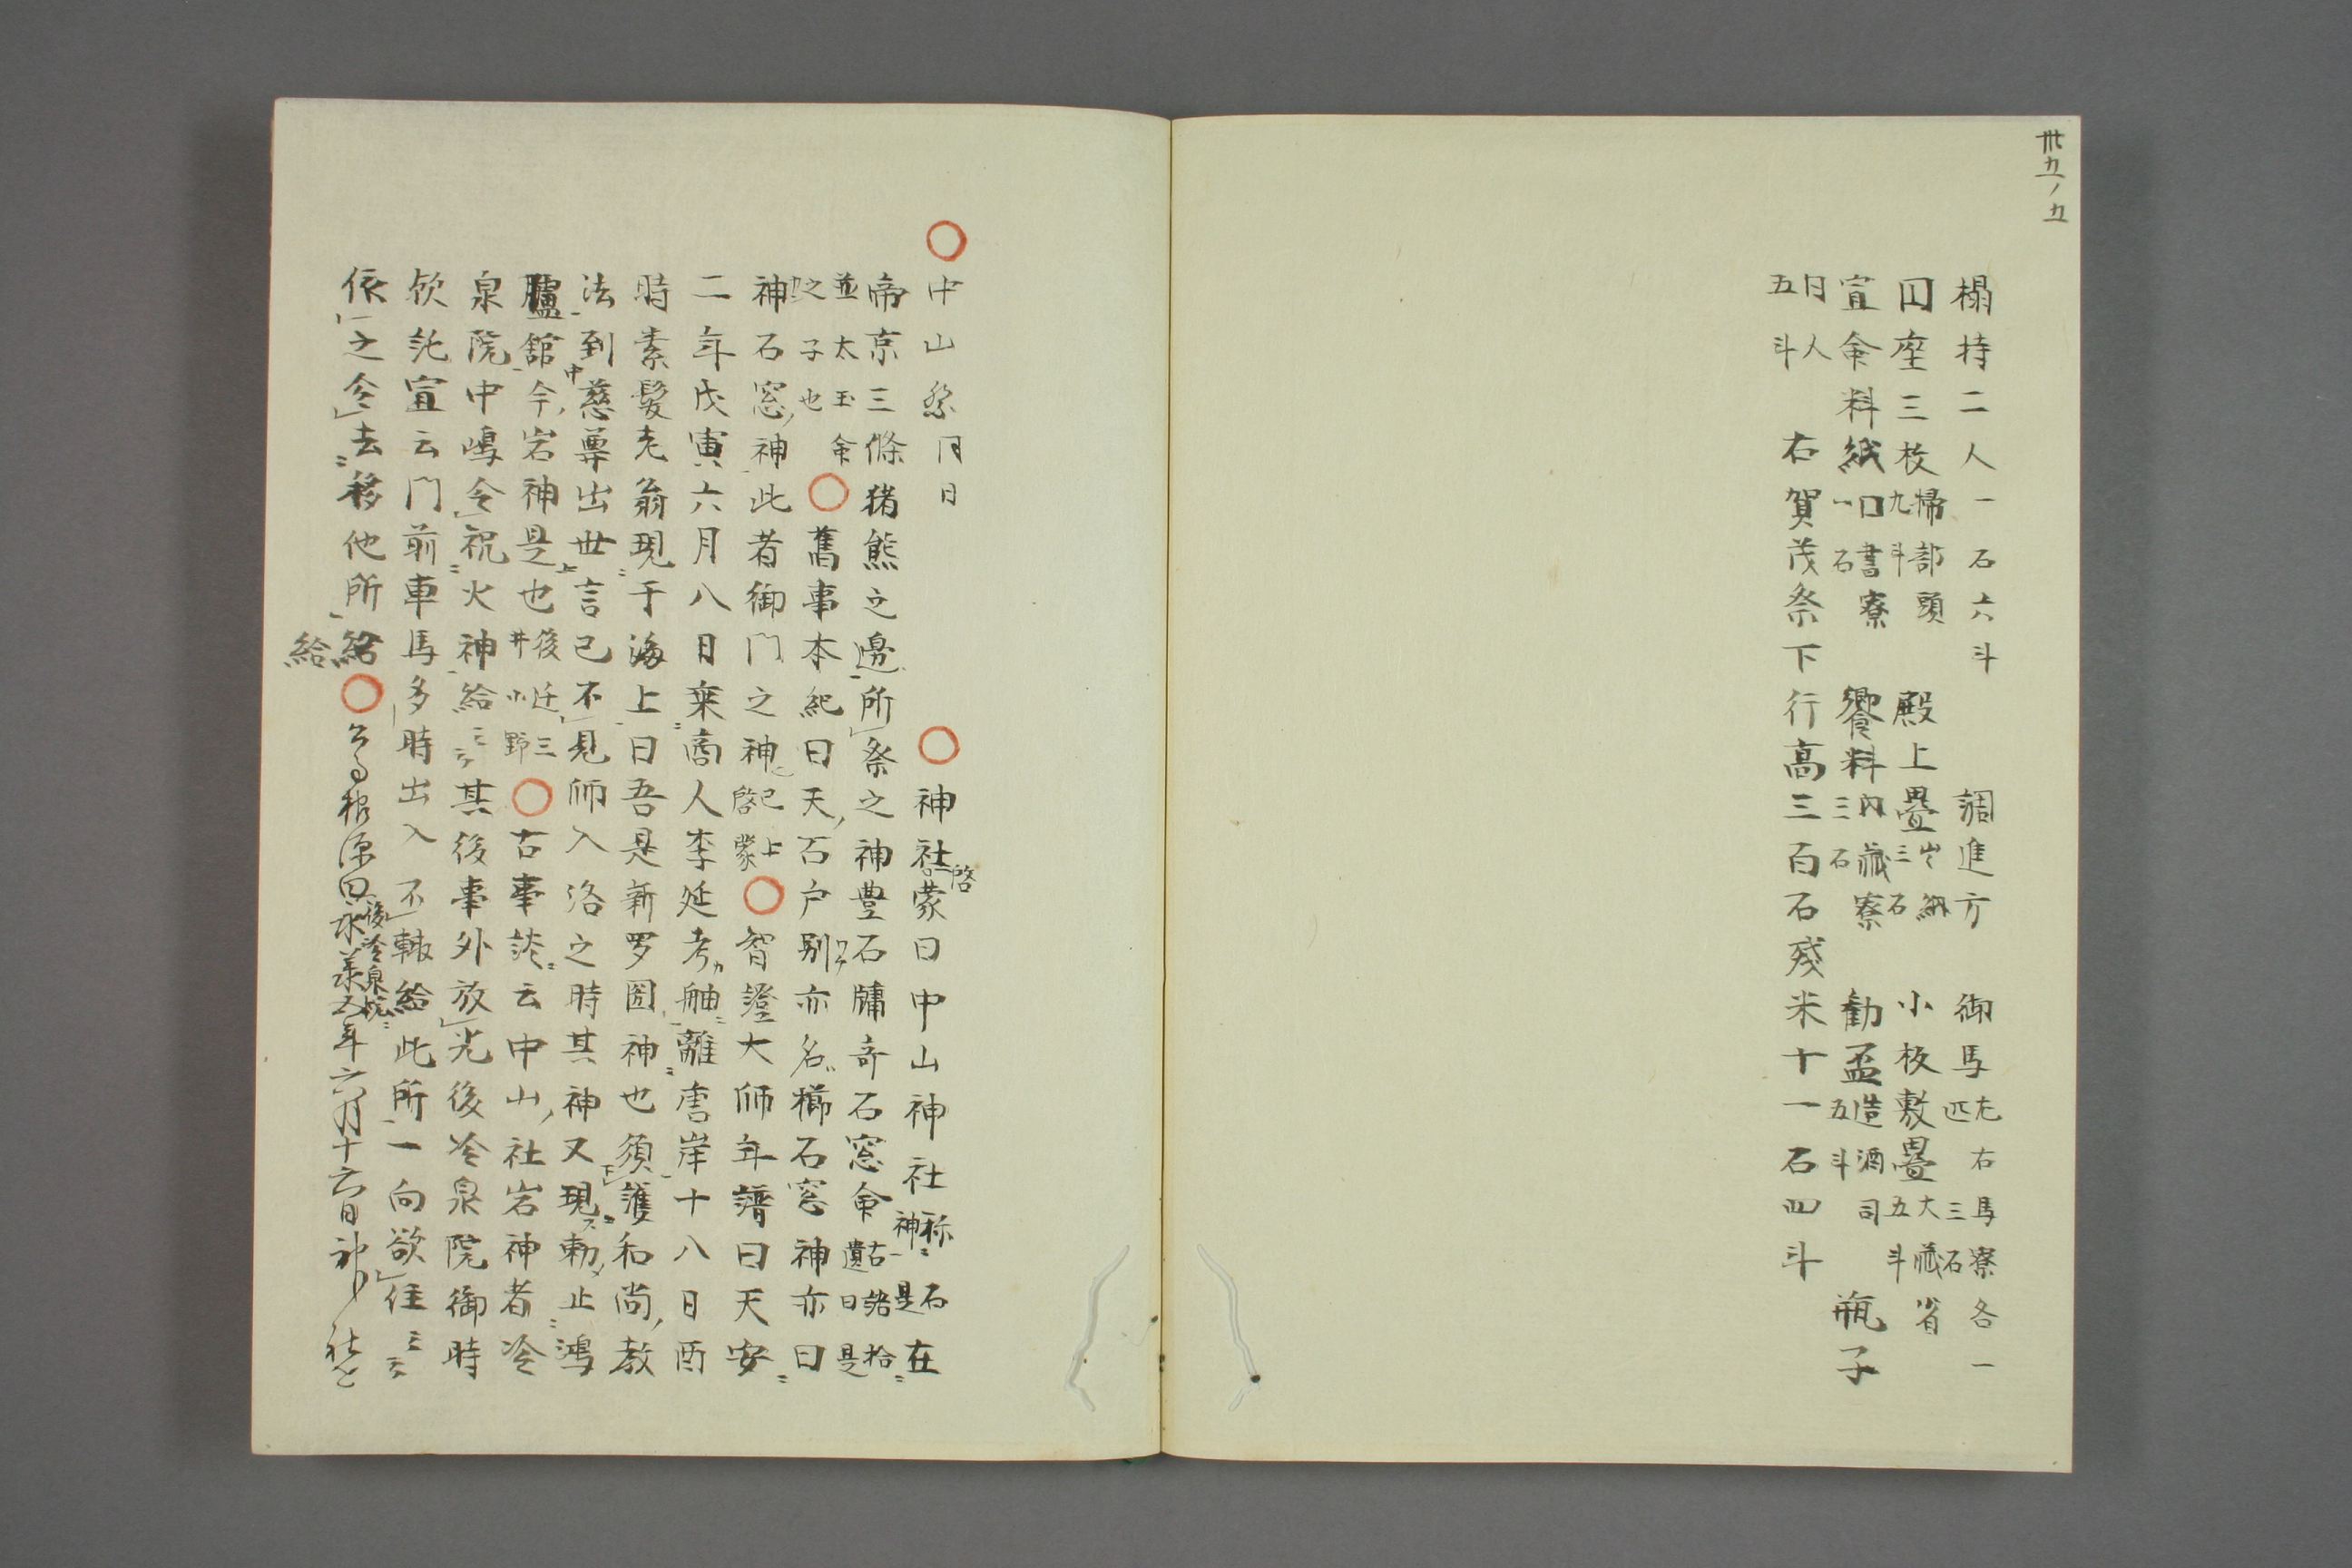 卅九ノ九
榻持二人一石六斗　調進方　御馬左右馬寮各一匹三石
円座三枚掃部頭九斗　殿上畳出納三石　小板敷畳大蔵省五斗
宣命料紙図書寮一石　饗料内蔵寮三石　勧盃造酒司五斗　瓶子
同人五斗　右賀茂祭下行高三百石残米十一石四斗
○中山祭同日　○神社啓蒙曰中山神社称石神是在
帝京三條猪熊之邊所祭之神豊石牖奇石窓命古語拾遺曰是
並太玉命之子也○舊事本紀曰天石戸別亦名櫛石窓神亦曰
神石窓神此者御門之神已上啓蒙○智證大師年譜曰天安
二年戊寅六月八日乗商人李延孝舶離唐岸十八日酉
時素髪老翁現于海上曰吾是新罗国神也須護和尚教
法到慈尊出世言已不見師入洛之時其神又現勅止鴻
臚舘今岩神是也後迁三井小野○古事談云中山社岩神者冷
泉院中嶋令祝火神給云云其後事外放光後冷泉院御時
欤託宣云門前車馬多時出入不輙給此所一向欲住云云
依之令去移他所給給○公事根源曰後冷泉院永承五年六月十六日神社と